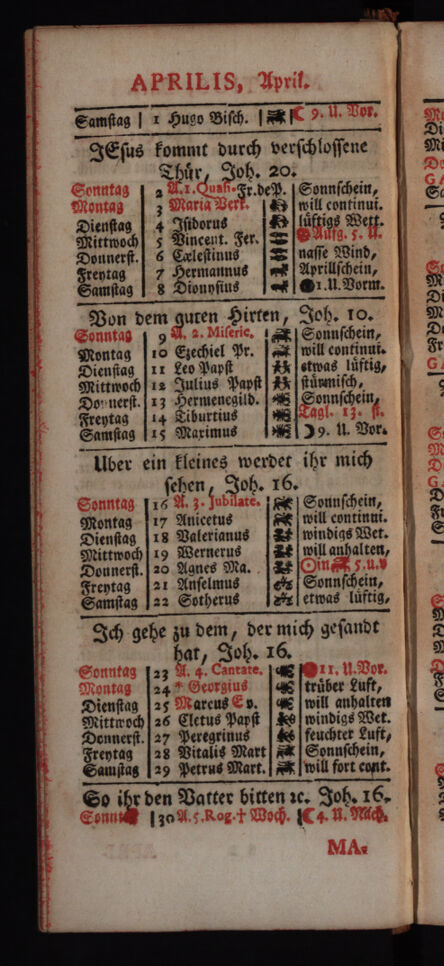 APRILIS, April.
Samstag | 1 Hugo Bisch. | 9. U. Vor.
JEsus kommt durch verschlossene
Thür, Joh. 20.
Sonntag 2 A. 1. Quas. Fr. deP. Sonnschein,
Montag 3 Maria Verk. will continui.
Dienstag 4 Isidorus lüftigs Wett.
Mittwoch 5 Vincent. Fer. Aufg. 5. U.
Donnerst. 6 Cælestinus nasse Wind,
Freytag 7 Hermannus Aprillschein,
Samstag 8 Dionysius 1. U. Vorm.
Von dem guten Hirten, Joh. 10.
Sonntag 9 A. 2. Miseric. Sonnschein,
Montag 10 Ezechiel Pr. will continui.
Dienstag 11 Leo Papst etwas lüftig,
Mittwoch 12 Julius Papst stürmisch,
Donnerst. 13 Hermenegild. Sonnschein,
Freytag 14 Tiburtius Tagl. 13. st.
Samstag 15 Maximus 9. U. Vor.
Uber ein kleines werdet ihr mich
sehen, Joh. 16.
Sonntag 16 A. 3. Jubilate. Sonnschein,
Montag 17 Anicetus will continui.
Dienstag 18 Valerianus windigs Wet.
Mittwoch 19 Wernerus will anhalten,
Donnerst. 20 Agnes Ma. in 5. u. v
Freytag 21 Anselmus Sonnschein,
Samstag 22 Sotherus etwas lüftig,
Ich gehe zu dem, der mich gesandt
hat, Joh. 16.
Sonntag 23 A. 4. Cantate. 11. U. Vor.
Montag 24 * Georgius trüber Luft,
Dienstag 25 Marcus Ev. will anhalten
Mittwoch 26 Cletus Papst windigs Wet.
Donnerst. 27 Peregrinus feuchter Luft,
Freytag 28 Vitalis Mart Sonnschein,
Samstag 29 Petrus Mart. will fort cont.
So ihr den Vatter bitten ꝛc. Joh. 16.
Sonntag 30 A. 5. Rog. † Woch. 4. U. Nach.
MA-